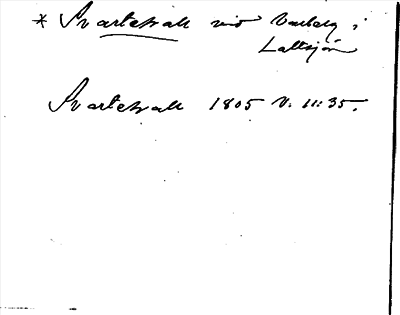 * Svartehall vid Varberg i
Saltsjön
Svartehall 1805 V. 11:35.